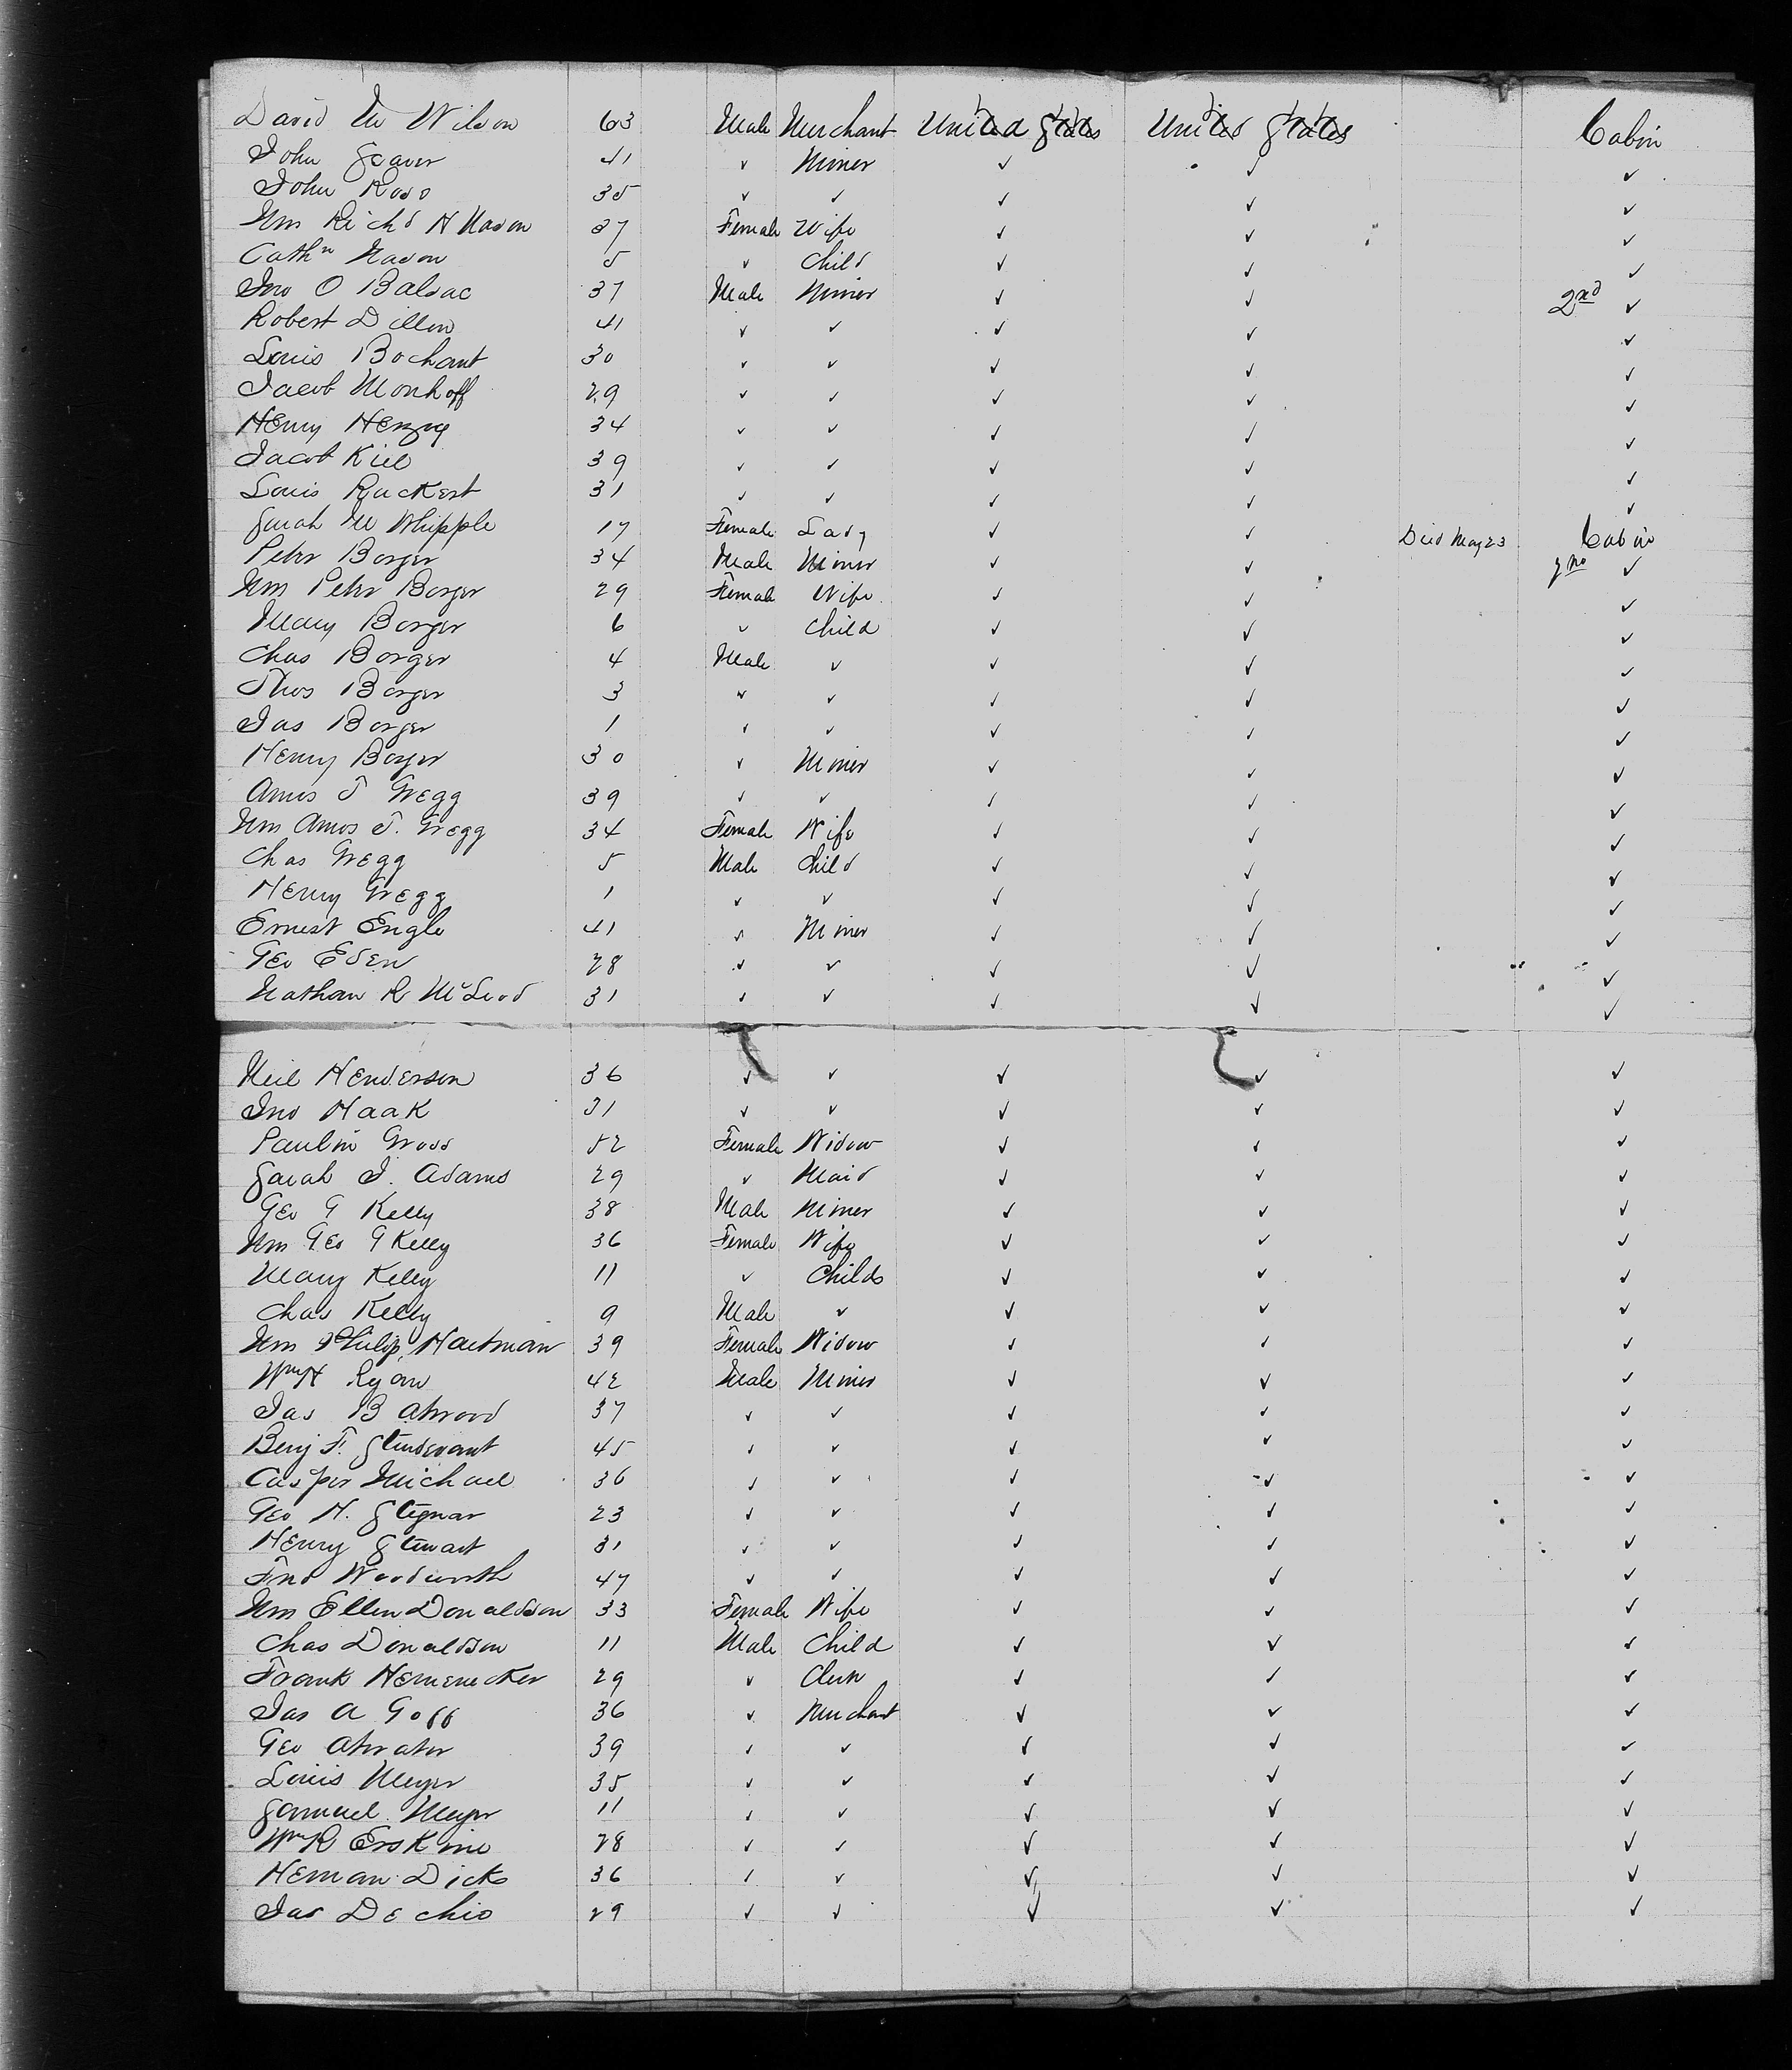 David M Wilson 63 Male Merchant United States United States Cabin
John 41 ✓ Miner ✓ ✓ ✓
John Ross 35 ✓ ✓ ✓ ✓ ✓
Mrs Richd H Nason 37 Female Wife ✓ ✓ ✓
Cathn Nason 5 ✓ Child ✓ ✓ ✓
Jno O Balsac 37 Male Miner ✓ ✓ 2nd ✓
Robert Dillon 41 ✓ ✓ ✓ ✓ ✓
Louis Bochant 30 ✓ ✓ ✓ ✓ ✓
Jacob Monhoff 29 ✓ ✓ ✓ ✓ ✓
Henry Herzog 34 ✓ ✓ ✓ ✓ ✓
Jacob Kiel 39 ✓ ✓ ✓ ✓ ✓
Louis Ruckert 31 ✓ ✓ ✓ ✓ ✓
Sarah M Whipple 17 Female Lady ✓ ✓ Died May 23 Cabin
Peter Borger 34 Male Miner ✓ ✓ 2nd ✓
Mrs Peter Borger 29 Female Wife ✓ ✓ ✓
Mary Borger 6 ✓ Child ✓ ✓ ✓
Chas Borger 4 Male ✓ ✓ ✓ ✓
Thos Borger 3 ✓ ✓ ✓ ✓ ✓
Jas Borger 1 ✓ ✓ ✓ ✓ ✓
Henry Borger 30 ✓ Miner ✓ ✓ ✓
Amos T Gregg 39 ✓ ✓ ✓ ✓ ✓
Mrs Amos T. Gregg 34 Female Wife ✓ ✓ ✓
Chas Gregg 5 Male Child ✓ ✓ ✓
Henry Gregg 1 ✓ ✓ ✓ ✓ ✓
Ernest Engle 41 ✓ Miner ✓ ✓ ✓
Geo Eden 28 ✓ ✓ ✓ ✓ ✓
Nathan R McLeod 31 ✓ ✓ ✓ ✓ ✓
Neil Henderson 36 ✓ ✓ ✓ ✓ ✓
Jno Haak 31 ✓ ✓ ✓ ✓ ✓
Paulin Gross 52 Female Widow ✓ ✓ ✓
Sarah J. Adams 29 ✓ Maid ✓ ✓ ✓
Geo G Kelly 38 Male Miner ✓ ✓ ✓
Mrs Geo G Kelly 36 Female Wife ✓ ✓ ✓
Mary Kelly 11 ✓ Childs ✓ ✓ ✓
Chas Kelly 9 Male ✓ ✓ ✓ ✓
Mrs Philip Hartman 39 Female Widow ✓ ✓ ✓
Wm H Ryan 42 Male Miner ✓ ✓ ✓
Jas B Atwood 37 ✓ ✓ ✓ ✓ ✓
Benj F. Sturdevant 45 ✓ ✓ ✓ ✓ ✓
Casper Michael 36 ✓ ✓ ✓ ✓ ✓
Geo H. Stegnar 23 ✓ ✓ ✓ ✓ ✓
Henry Stewart 31 ✓ ✓ ✓ ✓ ✓
Fred Woodworth 47 ✓ ✓ ✓ ✓ ✓
Mrs Ellen Donaldson 33 Female Wife ✓ ✓ ✓
Chas Donaldson 11 Male Child ✓ ✓ ✓
Frank Hemenecker 29 ✓ Clerk ✓ ✓ ✓
Jas A Goff 36 ✓ Merchant ✓ ✓ ✓
Geo Atwater 39 ✓ ✓ ✓ ✓ ✓
Louis Meyer 35 ✓ ✓ ✓ ✓ ✓
Samuel Meyer 11 ✓ ✓ ✓ ✓ ✓
Wm R Erskine 28 ✓ ✓ ✓ ✓ ✓
Heman Dicks 36 ✓ ✓ ✓ ✓ ✓
Jas De Chio 29 ✓ ✓ ✓ ✓ ✓